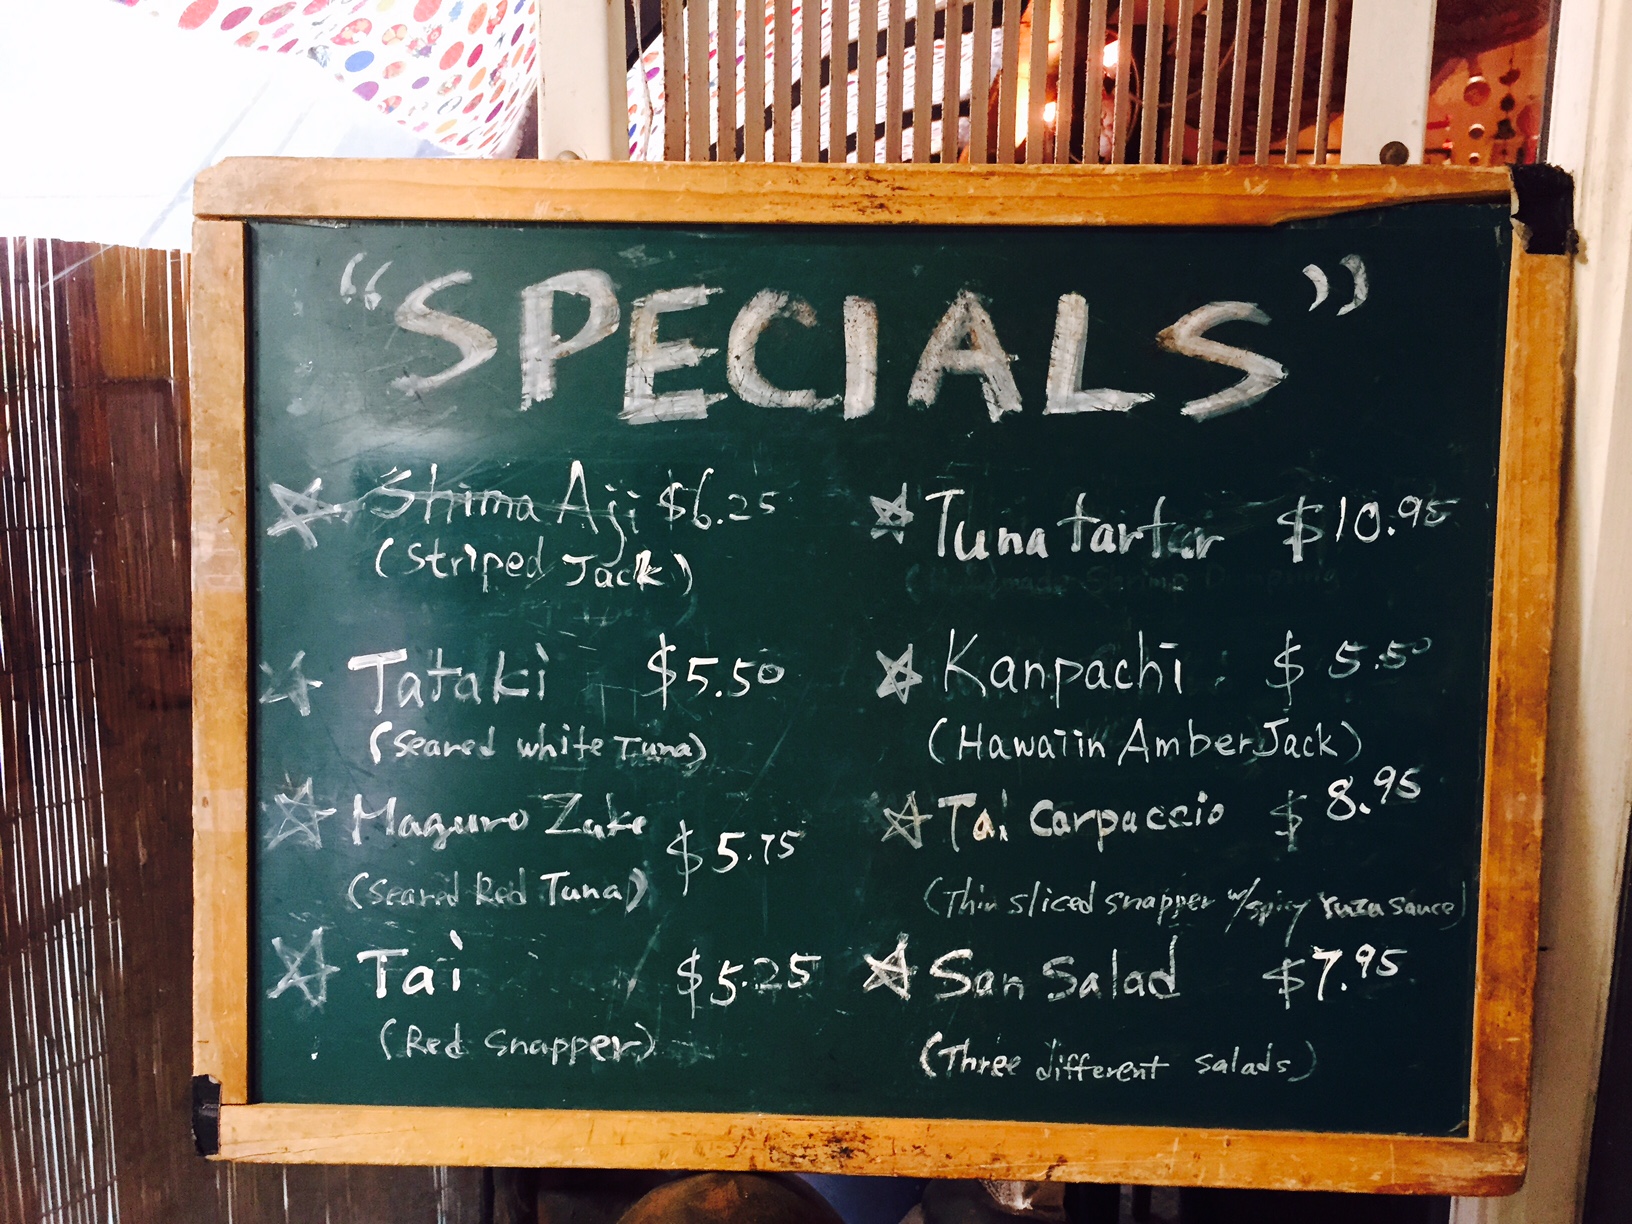 “SPECIALS”
Shima Aji $6.25
(Striped Jack)
Tataki $5.50
(Seared white Tuna)
Maguro Zuke $5.75
(Seared Red Tuna)
Tai $5.25
(Red Snapper)
Tuna tartar $10.95
Kanpachi $5.50
(Hawaiin Amber Jack)
Tai Carpaccio $8.95
(Thin sliced snapper w/spicy Yuzu Sauce)
San Salad $7.95
(Three different salads)